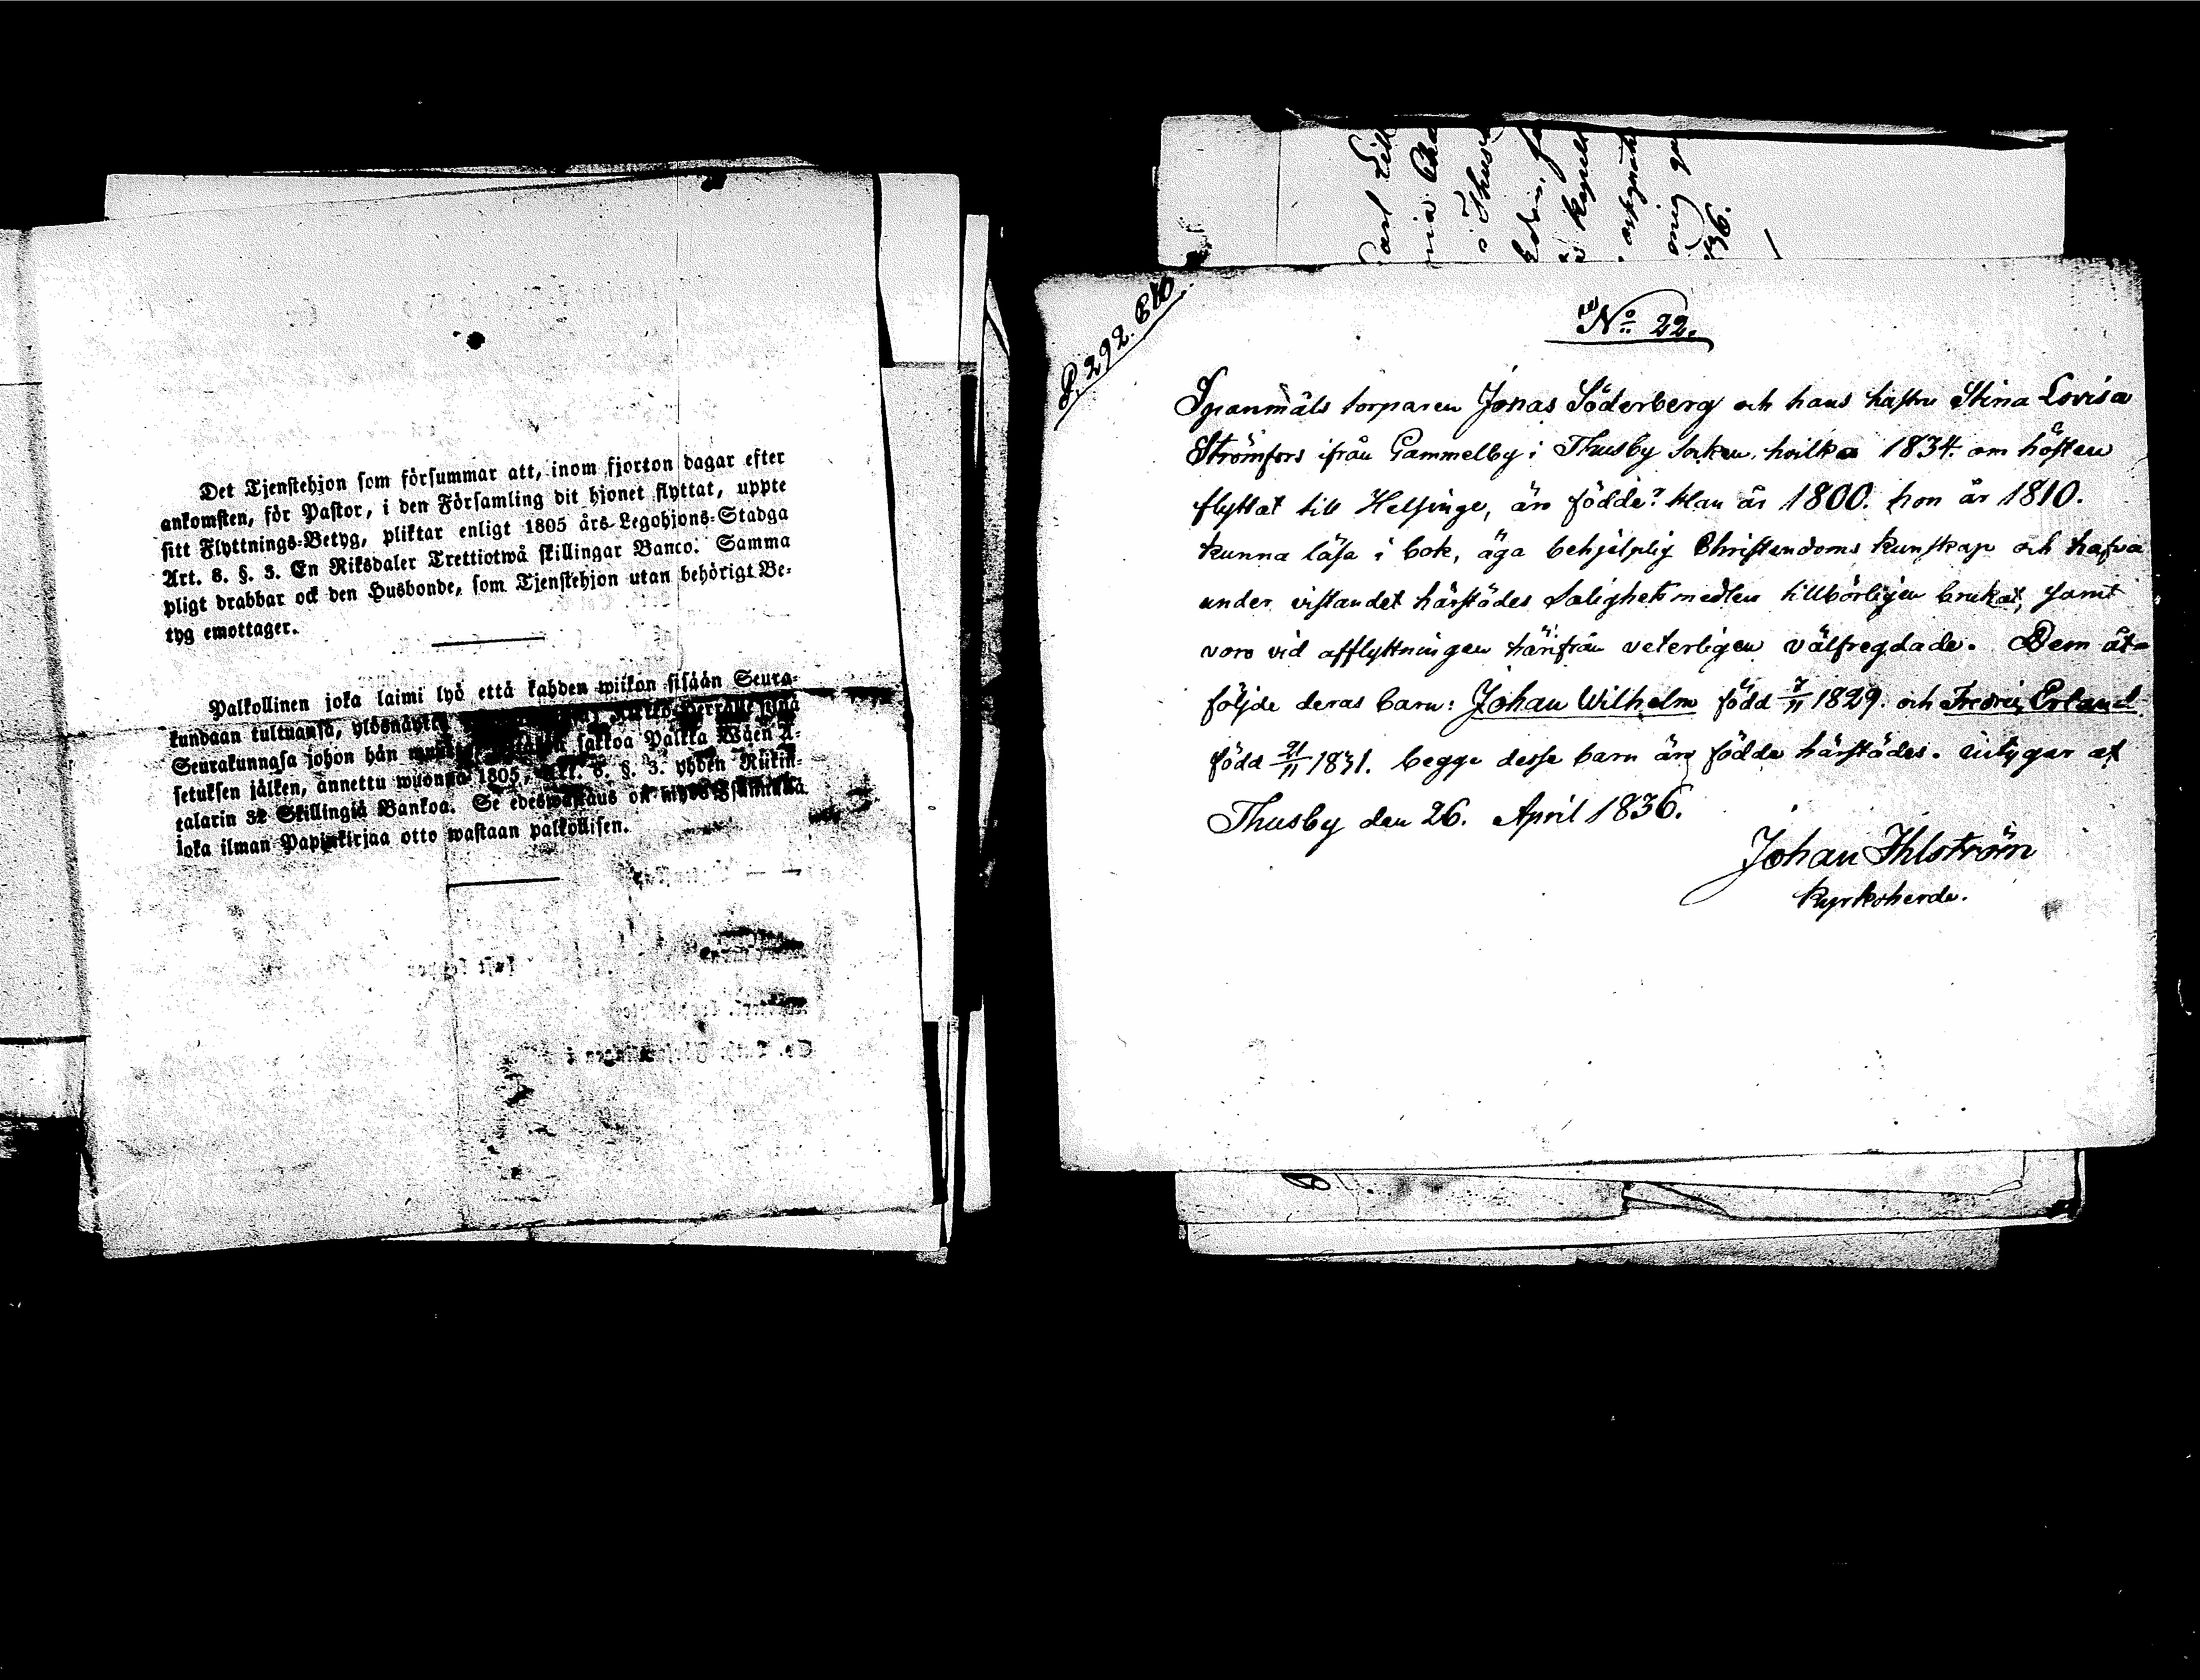 Det Tjenstehjon som försummar att, inom fjorton dagar efter
ankomsten, för Pastor, i den Församling dit hjonet flyttat, uppte
sitt Flyttnings-Betyg, pliktar enligt 1805 års Legohjons-Stadga
Art. 8. §. 3. En Riksdaler Trettiotwå skillingar Banco. Samma
pligt drabbar ock den Husbonde, som Tjenstehjon utan behörigt Be-
tyg emottager.
Palkollinen joka laimi lyö että kahden wiikon sisään Seura-
kundaan tultuansa,
Seurakunnasa johon hän sakkoa Palkka Wäen A-
setuksen jälken, annettu wuonna 1805, Art. 8. §. 3. yhden Riikin-
talarin 32 Skillingiä Bankoa. Se edeswastaus on
joka ilman Papinkirjaa otto wastaan palkollisen.
36.
P. 292.
No 22.
Jonas Söderberg och hans hustru Stina Lovisa
Strömfors ifrån Gammelby i Thusby Socken, hvilka 1834. om hösten
flyttat till Helsinge, äro födde: Han år 1800. hon år 1810.
kunna läsa i bok, äga behjelplig Christendoms kunskap och hafva
under vistandet härstädes Salighetsmedlen tillbörligen brukat, samt
voro vid afflyttningen härifrån veterligen välfregdade. Dem åt-
följde deras barn: Johan Wilhelm född 7/11 1829. och Fredric Erland
född 21/11 1831. begge desse barn äro födde härstädes. intygar af
Thusby den 26. April 1836.
Johan Ihlström
Kyrkoherde.